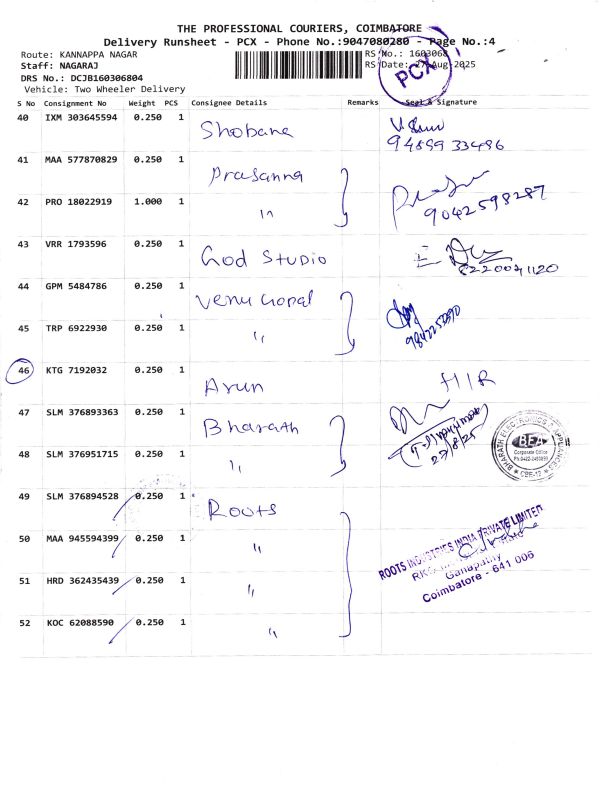 THE PROFESSIONAL COURIERS, COIMBATORE
Delivery Runsheet - PCX - Phone No.:9047080280 - Page No.:4
Route: KANNAPPA NAGAR RS No.: 1603068
Staff: NAGARAJ RS Date: 27-Aug-2025
DRS No.: DCJB160306804
Vehicle: Two Wheeler Delivery
PCX
S No Consignment No Weight PCS Consignee Details Remarks Seal & Signature
40 IXM 303645594 0.250 1 Shobana
94899 33496
41 MAA 577870829 0.250 1 Prasanna
42 PRO 18022919 1.000 1 "
9042598287
43 VRR 1793596 0.250 1 God Studio
8220021120
44 GPM 5484786 0.250 1 Venu Gopal
45 TRP 6922930 0.250 1 "
46 KTG 7192032 0.250 1 Arun HIR
47 SLM 376893363 0.250 1 Bharath
27/8/25
48 SLM 376951715 0.250 1 "
BHARATH ELECTRONICS & APPLIANCES
BEA
Corporate Office
CBE-12
49 SLM 376894528 0.250 1 Roots
50 MAA 945594399 0.250 1 "
51 HRD 362435439 0.250 1 "
52 KOC 62088590 0.250 1 "
ROOTS INDUSTRIES INDIA PRIVATE LIMITED
Ganapathy
Coimbatore - 641 006